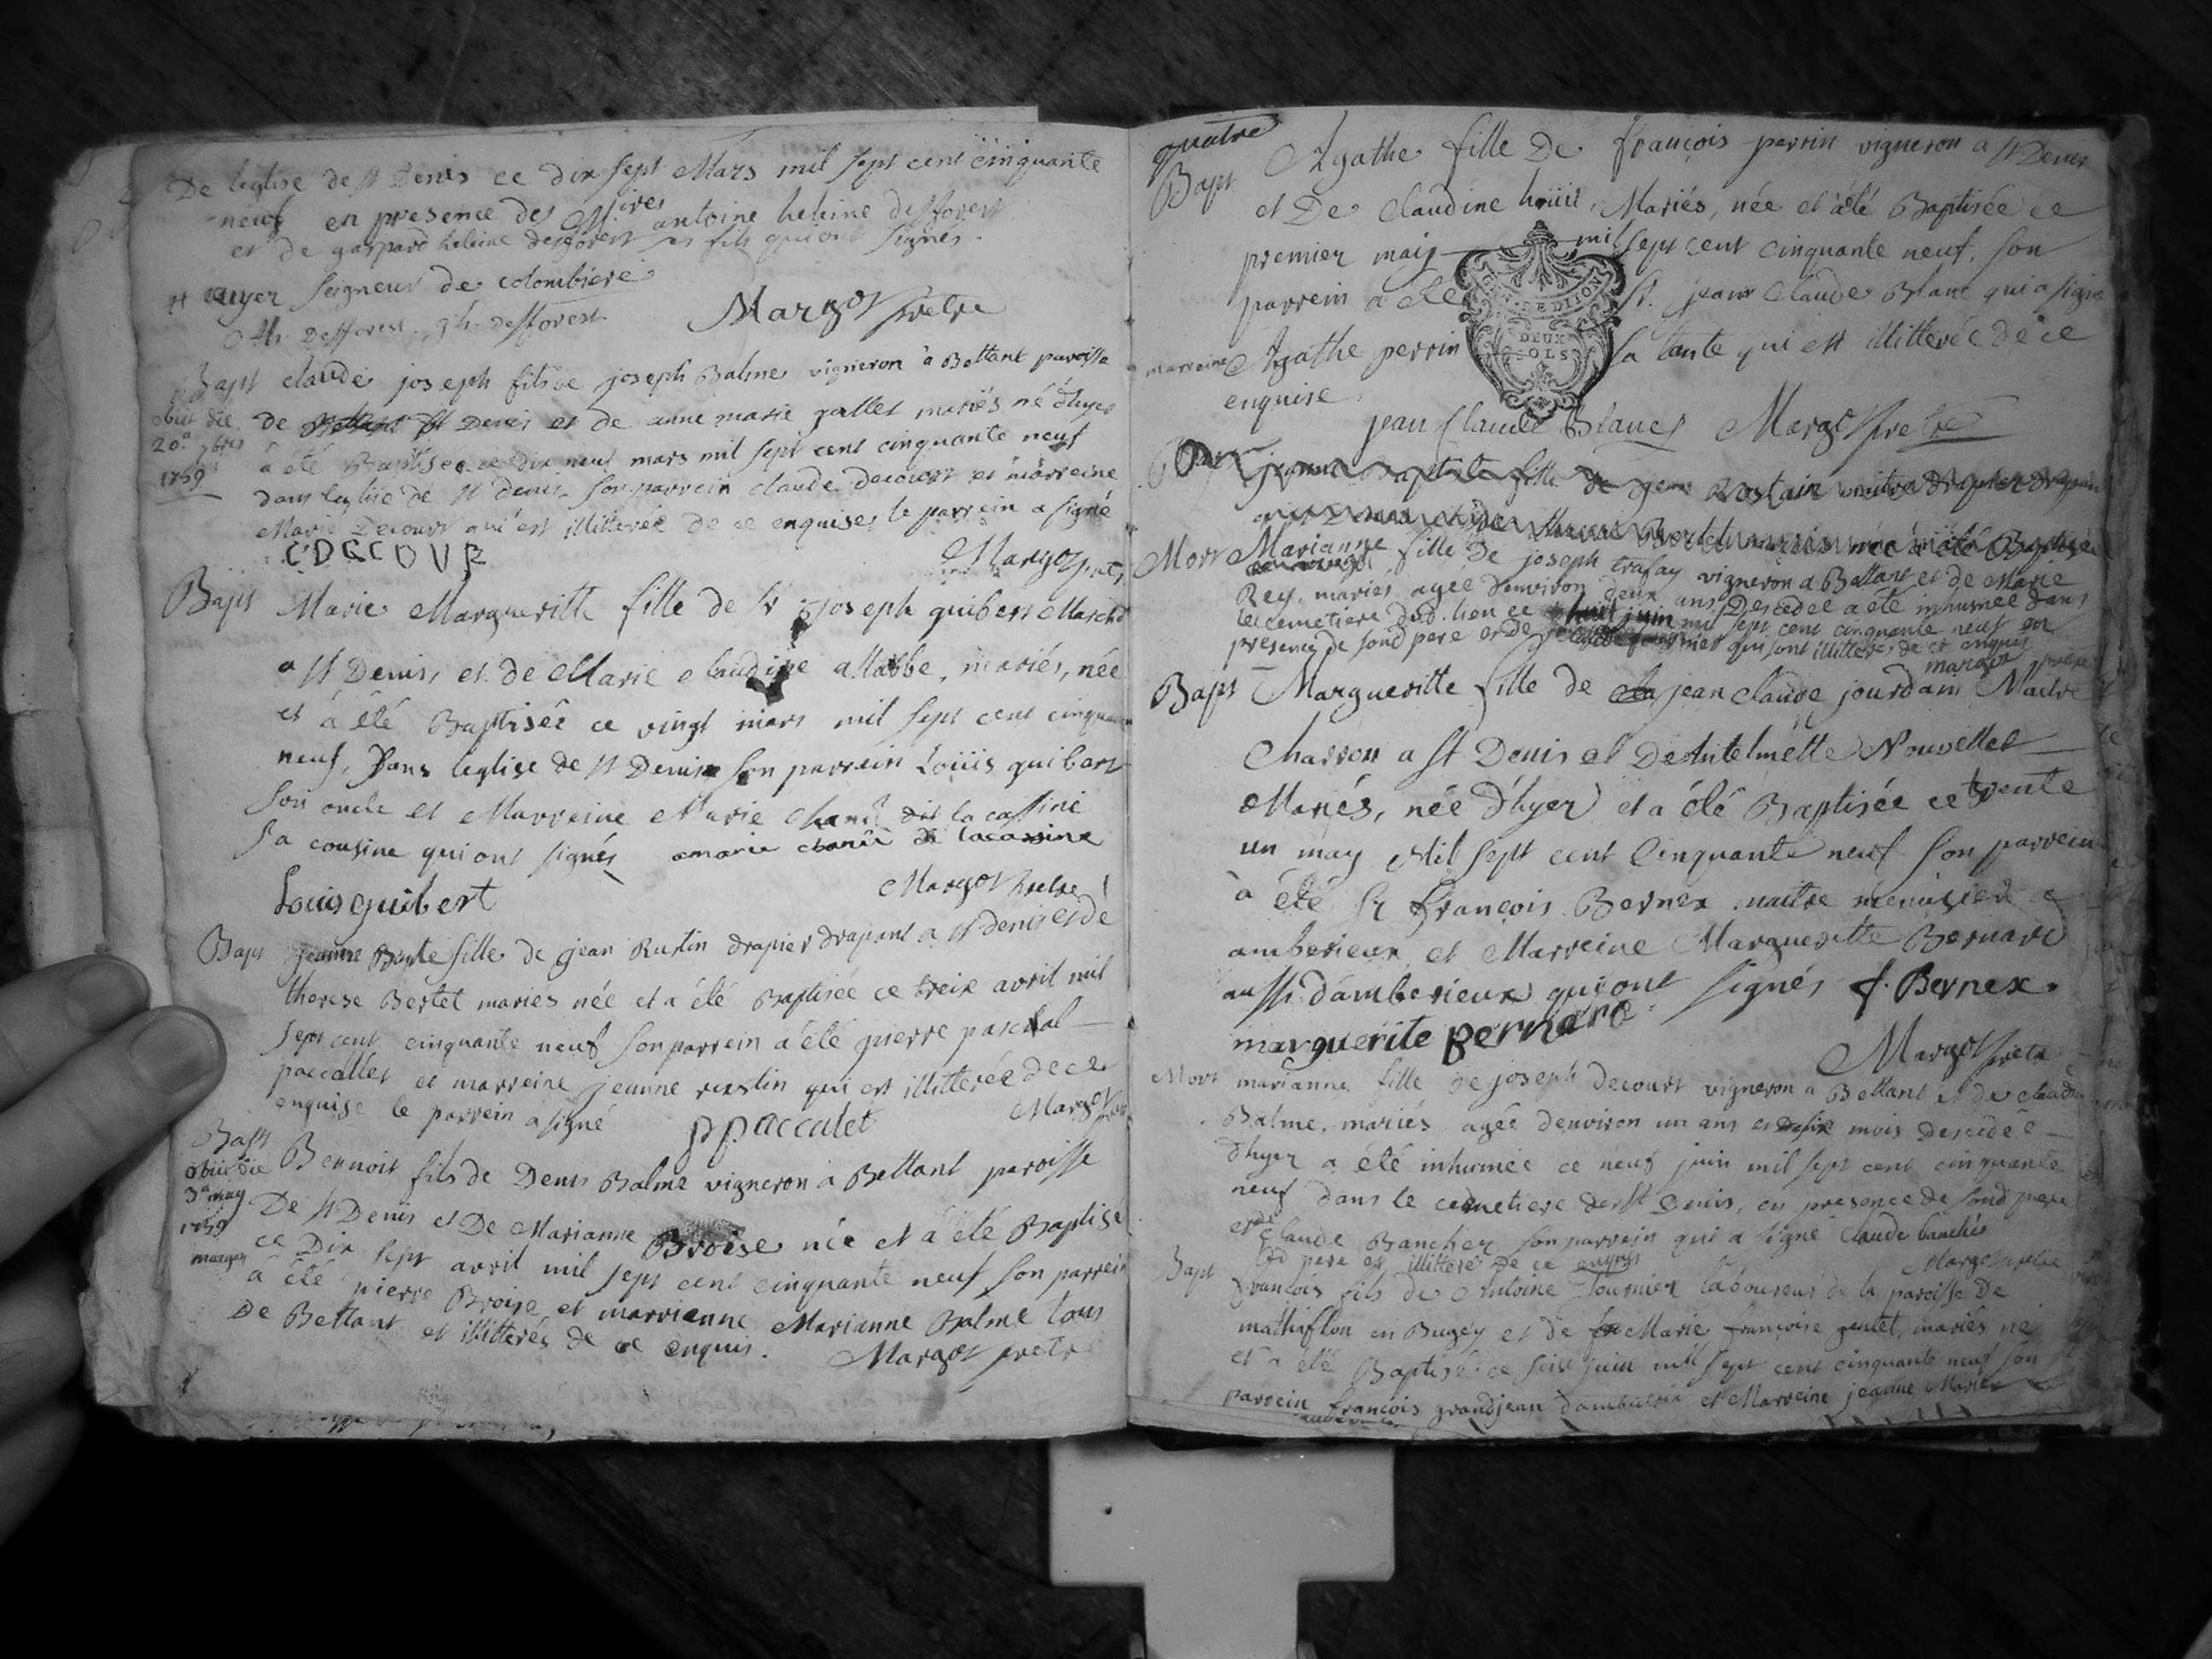 De leglise de st Denis ce dix sept Mars mil sept cent cinquante
neuf en presence des Mres antoine heleine desforest
et de gaspard heleine desforest ses fils qui ont signés.
escuyer seigneur de colombiere
Ah. Desforest. gh. desforest. Margot pretre
Bapt claude joseph fils de joseph Balme vigneron à Bettant paroisse
obiit die de st Denis et de anne marie gallet mariés né d'hyer
20.a 9bris à été Baptisé ce dix neuf mars mil sept cent cinquante neuf
1759 dans leglise de st denis son parrein claude decourt et marreine
Marie Decourt qui est illitterée de ce enquise, le parrein a signé
CDECOUR Margot ptre
Bapt Marie Margueritte fille de sr joseph guibert March
a st Denis, et de Marie claudine allabbe, mariés, née
et à été Baptisée ce vingt mars mil sept cent cinquante
neuf, Dans leglise de st Denis son parrein Loüis guibert
son oncle et Marreine Marie dit la cassine
sa cousine qui ont signés marie de lacassine
Louis guibert Margot pretre
Bapt jeanne fille de jean Rustin drapier drapant a st denis et de
therese Bertet mariés née et a été Baptisée ce treix avril mil
sept cent cinquante neuf son parrein a été pierre paschal
paccallet et marreine jeanne rustin qui est illitterée de ce
enquise le parrein a signé ppaccalet Margot ptre
Bapt Bennoit fils de Denis Balme vigneron à Bettant paroisse
obiit die
3a may De st Denis et De Marianne Broise née et a été Baptisé
1759 ce Dix sept avril mil sept cent cinquante neuf son parrein
margot à été pierre Broise et marrienne Marianne Balme tous
De Bettant et illitterés de ce enquis. Margot pretre
quatre
Bapt Agathe fille De françois perrin vigneron a st Denis
et De Claudine Mariés, née et a été Baptisée ce
premier may mil sept cent cinquante neuf. son
parrein a été sr. jean Claude Blanc qui a signé
marreine Agathe perrin sa tante qui est illitterée de ce
enquise.
DEUX SOLS
jean Claude Blanc Margot pretre
Bapt jeanne Baptiste fille de jean Rostain drapier
Bertet née a été Baptisée
Mort Marianne fille De joseph trafay vigneron a Bettant et de Marie
Rey, mariés agée denviron deux ans, Decedee a été inhumée dans
le cemetiere dud. lieu ce juin mil sept cent cinquante neuf en
presence de sond pere et de qui sont illitterés de ce enquis
margot pretre
Bapt Margueritte fille de jean claude jourdain Maitre
Charron a St Denis et De Antelmette Nouvellet
Mariés, née d'hyer et a été Baptisée ce trente
un may Mil sept cent Cinquante neuf son parrein
à été sr françois Bernex maitre menusier a
amberieux et Marreine Margueritte Bernard
aussi d'amberieux qui ont signés f. Bernex.
marguerite Bernard
Margot pretre
Mort marianne fille de joseph decourt vigneron à Bettant et de claudine
Balme, mariés agée denviron un ans et mois decedée
d'hyer a été inhumée ce neuf juin mil sept cent cinquante
neuf dans le cemetiere de st Denis, en presence de sond pere
et de Claude Bancher son parrein qui a signé Claude banchet
led pere est illitteré De ce enquis Margot pretre
Bapt François fils de Antoine Tournier laboureur de la paroisse De
mathiflon en Bugey et de Marie françoise gentet, mariés né
et a été Baptisé ce seise juin mil sept cent cinquante neuf son
parrein françois grandjean et Marreine jeanne Marie